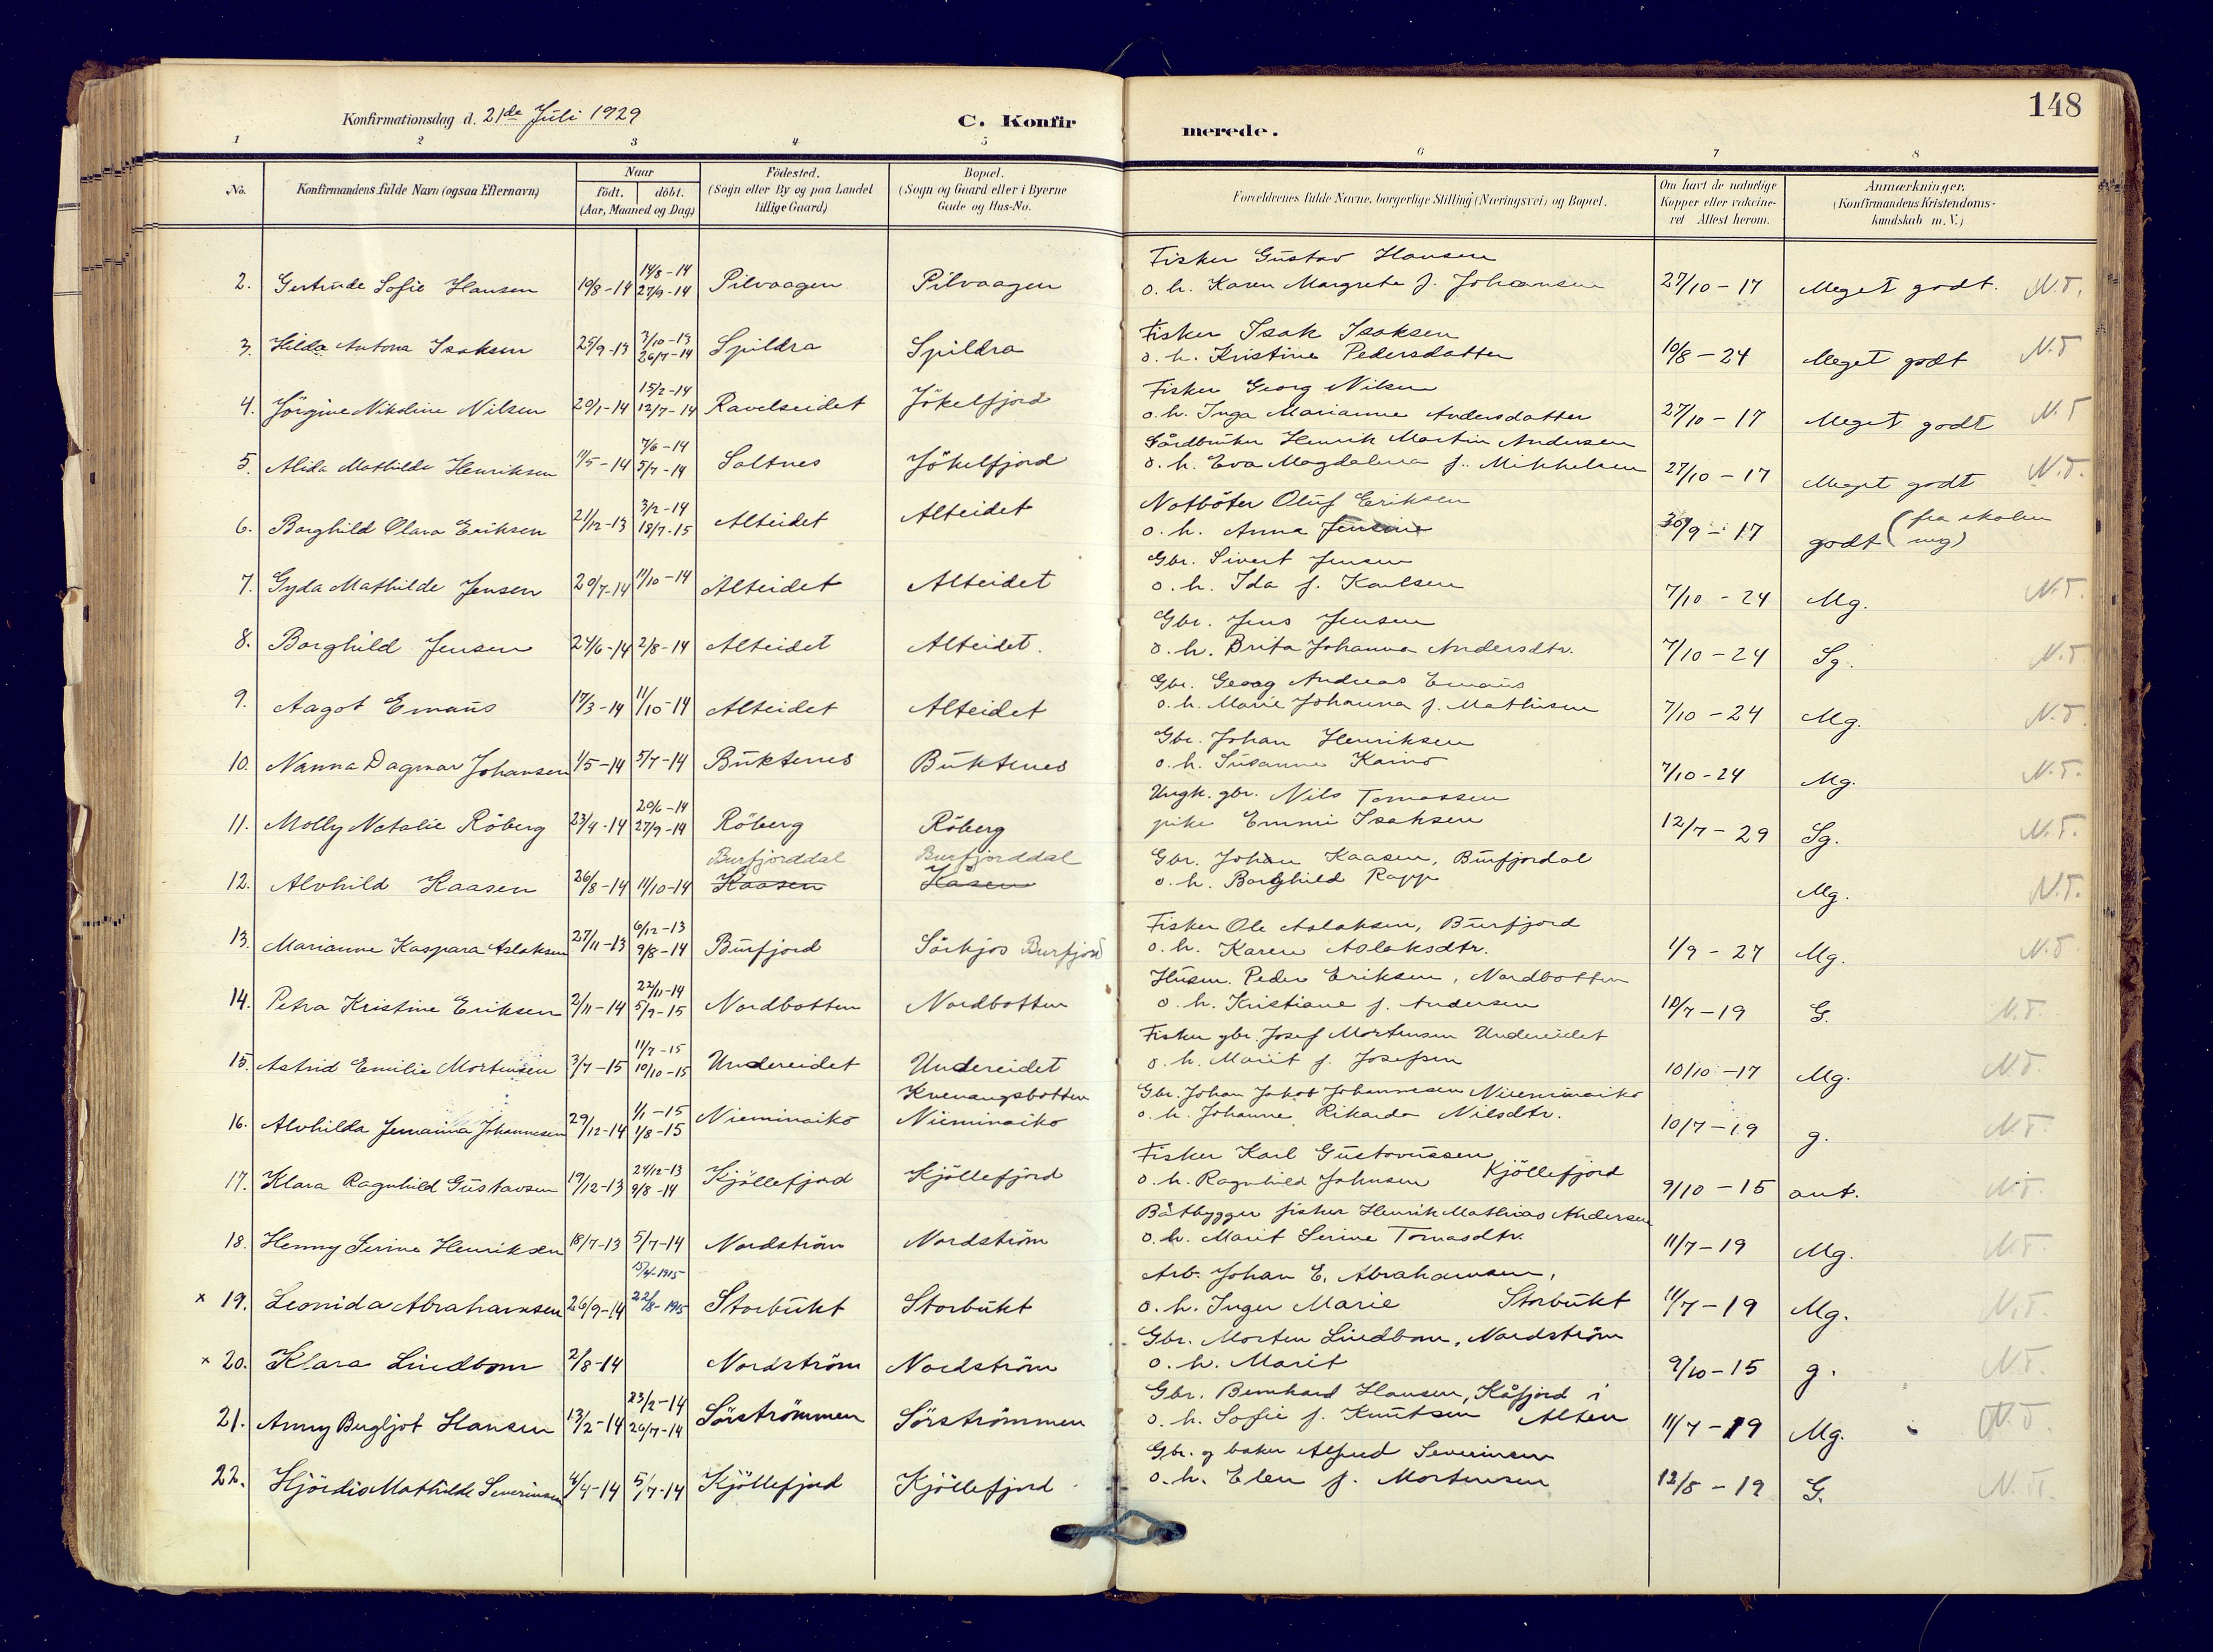 148
Konfirmationsdag d. 21de Juli 1929
C. Konfirmerede.
1 2 3 4 5 6 7 8
No.
Konfirmandens fulde Navn (ogsaa Efternavn)
Naar
födt. döbt.
(Aar, Maaned og Dag)
Födested.
(Sogn eller By og paa Landet
tillige Gaard)
Bopæl.
(Sogn og Gaard eller i Byerne
Gade og Hus-No.
Forældrenes fulde Navne, borgerlige Stilling (Næringsvei) og Bopæl.
Om havt de naturlige
Kopper eller vakcine-
ret Attest herom.
Anmærkninger.
(Konfirmandens Kristendoms-
kundskab m. V.)
14/8-14 Fisker Gustav Hansen
2. Gertrude Sofie Hansen 10/8-14 27/9-14 Pilvaagen Pilvaagen o. h. Karen Margrete f. Johansen 27/10-17 Meget godt. N.T.
3/10-13 Fisker Isak Isaksen
3. Hilda Antona Isaksen 25/9-13 26/7-14 Spildra Spildra o. h. Kristine Pedersdatter 10/8-24 Meget godt N.T
15/2-14 Fisker Georg Nilsen
4. Jörgine Nikoline Nilsen 20/1-14 12/7-14 Ravelseidet Jökelfjord o. h. Inga Marianne Andersdatter 27/10-17 Meget godt N.T
7/6-14 Gårdbruker Henrik Martin Andersen
5. Alida Mathilde Henriksen 11/5-14 5/7-14 Saltnes Jökelfjord o. h. Eva Magdalena f. Mikkelsen 27/10-17 Meget godt N.T.
3/2-14 Notböter Oluf Eriksen
6. Borghild Olava Eriksen 21/12-13 18/7-15 Alteidet Alteidet o. h. Anna 30/9-17 godt (fra skolen mg)
Gbr. Sivert Jensen
7. Gyda Mathilde Jensen 20/7-14 11/10-14 Alteidet Alteidet o. h. Ida f. Karlsen 7/10-24 Mg. N.T.
Gbr. Jens Jensen
8. Borghild Jensen 24/6-14 2/8-14 Alteidet Alteidet. o. h. Brita Johanna Andersdtr. 7/10-24 Sg. N.T
Gbr. Georg Andreas Emaus
9. Aagot Emaus 17/3-14 11/10-14 Alteidet Alteidet o. h. Marie Johanna f. Mathisen 7/10-24 Mg. N.T.
Gbr. Johan Henriksen
10. Nanna Dagmar Johansen 1/5-14 5/7-14 Buktenes Buktenes o. h. Susanne Kaino 7/10-24 Mg. N.T.
20/6-14 Ungk. gbr. Nils Tomassen
11. Molly Natalie Röberg 23/4-14 27/9-14 Röberg Röberg pike Emmi Isaksen 12/7-29 Sg. N.T.
Burfjorddal Burfjorddal Gbr. Johan Kaasen, Burfjordal
12. Alvhild Kaasen 26/8-14 11/10-14 Kaasen Kåsen o. h. Borghild Rapp Mg. N.T.
6/12-13 Fisker Ole Aslaksen, Burfjord
13. Marianne Kaspara Aslaksen 27/11-13 9/8-14 Burfjord Sörkjos Burfjord o. h. Karen Aslaksdtr. 1/9-27 Mg. N.T.
22/11-14 Husm. Peder Eriksen, Nordbotten
14. Petra Kristine Eriksen 2/11-14 5/9-15 Nordbotten Nordbotten o. h. Kristiane f. Andersen 10/7-19 G. N.T.
11/7-15 Fisker gbr. Josef Mortensen Undereidet
15. Astrid Emilie Mortensen 3/7-15 10/10-15 Undereidet Undereidet o. h. Marit f. Josefsen 10/10-17 Mg. N.T.
1/1-15 Kvenangsbotten Gbr. Johan Jakob Johannesen Nieminaiko
16. Alvhilda Jenanna Johannesen 29/12-14 1/8-15 Nieminaiko Nieminaiko o. h. Johanne Rikarda Nilsdtr. 10/7-19 g. N.T.
24/12-13 Fisker Karl Gustavussen
17. Klara Ragnhild Gustavsen 19/12-13 9/8-14 Kjöllefjord Kjöllefjord o. h. Ragnhild Johnsen Kjöllefjord 9/10-15 ant. N.T.
Båtbygger fisker Henrik Mathias Andersen
18. Henny Serine Henriksen 18/7-13 5/7-14 Nordström Nordström o. h. Marit Serine Tomasdtr. 11/7-19 Mg. N.T.
15/4-1915 Arb. Johan E. Abrahamsen,
x 19. Leonida Abrahamsen 26/9-14 22/8-1915 Storbukt Storbukt o. h. Inger Marie Storbukt 11/7-19 Mg. N.T
Gbr. Morten Lindbom, Nordström
x 20. Klara Lindbom 2/8-14 Nordström Nordström o. h. Marit 9/10-15 g. N.T.
23/2-14 Gbr. Bernhard Hansen, Kåfjord i
21. Anny Bergljot Hansen 13/2-14 26/7-14 Sörströmmen Sörströmmen o. h. Sofie f. Knutsen Alten 11/7-19 Mg. N.T.
Gbr. og baker Alfred Severinsen
22. Hjördis Mathilde Severinsen 4/4-14 5/7-14 Kjöllefjord Kjöllefjord o. h. Elen f. Mortensen 12/8-19 G. N.T.